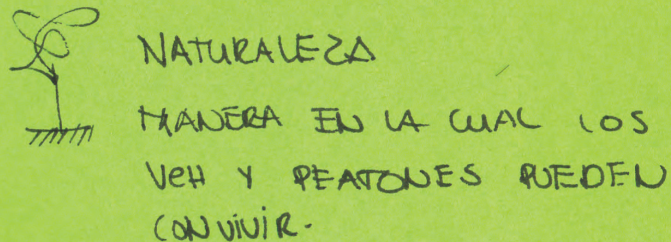 NATURALEZA
MANERA EN LA CUAL LOS
VEH Y PEATONES PUEDEN
CONVIVIR.